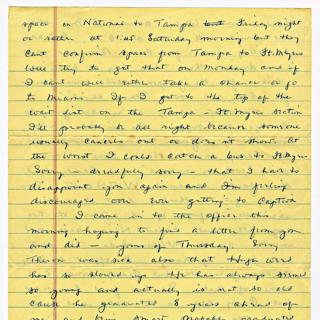 space on National to Tampa but Friday night
or rather at 1:25 Saturday morning but they
can't confirm space from Tampa to Ft. Myers
will try to get that on Monday and if
I can't will either take a chance or go
to Miami. If I get to the top of the
wait list on the Tampa - Ft. Myers section
I'll probably be all right because someone
usually cancels out or doesn't show. At
the worst I could catch a bus to Ft. Myers
Sorry - dreadfully sorry - that I have to
disappoint you again and I'm feeling
discouraged over ever getting to Captiva
I came in to the office this
morning hoping to find a letter from you
and did - yours of Thursday. Sorry
was sick also that Hugh
has so He has always seemed
so young and actually is not so old
cause he graduated 8 years ahead of
me and graduated